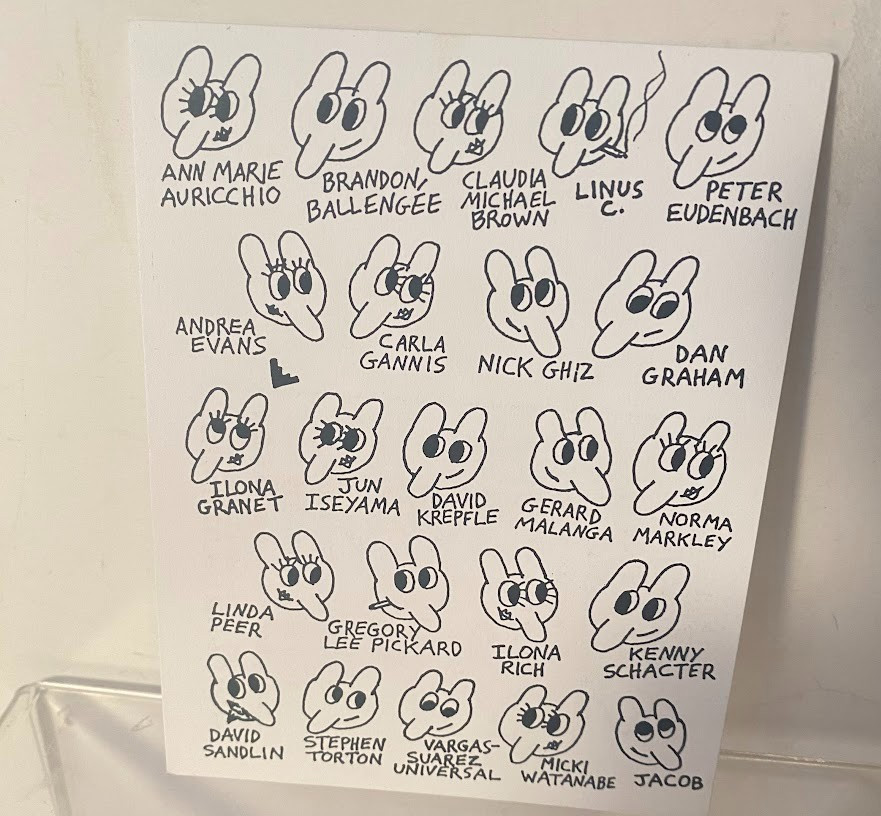 ANN MARIE
AURICCHIO
BRANDON
BALLENGEE
CLAUDIA
MICHAEL
BROWN
LINUS
C.
PETER
EUDENBACH
ANDREA
EVANS
CARLA
GANNIS
NICK GHIZ
DAN
GRAHAM
ILONA
GRANET
JUN
ISEYAMA
DAVID
KREPFLE
GERARD
MALANGA
NORMA
MARKLEY
LINDA
PEER
GREGORY
LEE PICKARD
ILONA
RICH
KENNY
SCHACTER
DAVID
SANDLIN
STEPHEN
TORTON
VARGAS-
SUAREZ
UNIVERSAL
MICKI
WATANABE
JACOB